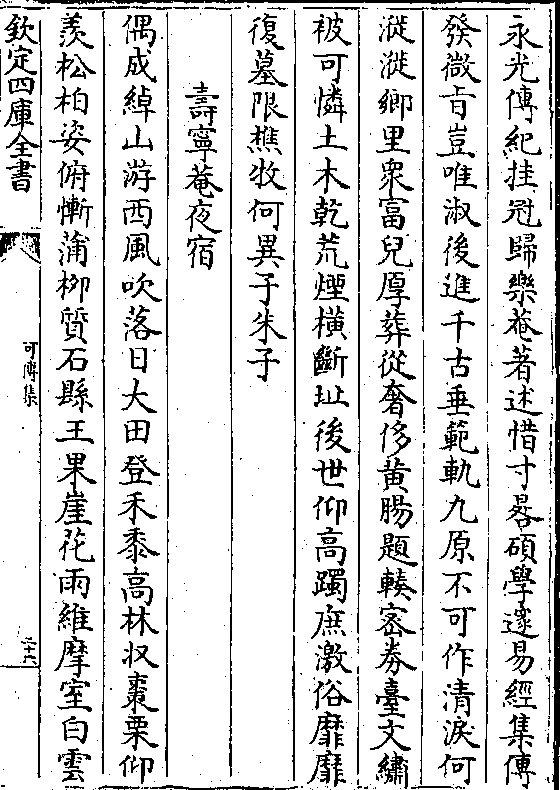 永光傳紀挂冠歸樂菴著述惜寸晷碩學邃易經集傳
發微旨豈唯淑後進千古垂範軌九原不可作清淚何
漇漇鄉里衆富兒厚葬從奢侈黄腸題輳密券臺文繡
被可憐土木乾荒煙横斷址後世仰高躅庶激俗靡靡
復墓限樵牧何異子朱子
壽寧菴夜宿
偶成綽山游西風吹落日大田登禾黍高林收棗栗仰
羨松柏姿俯慚蒲柳質石縣王果崖花雨維摩室白雲
欽定四庫全書
可傳集
二十六